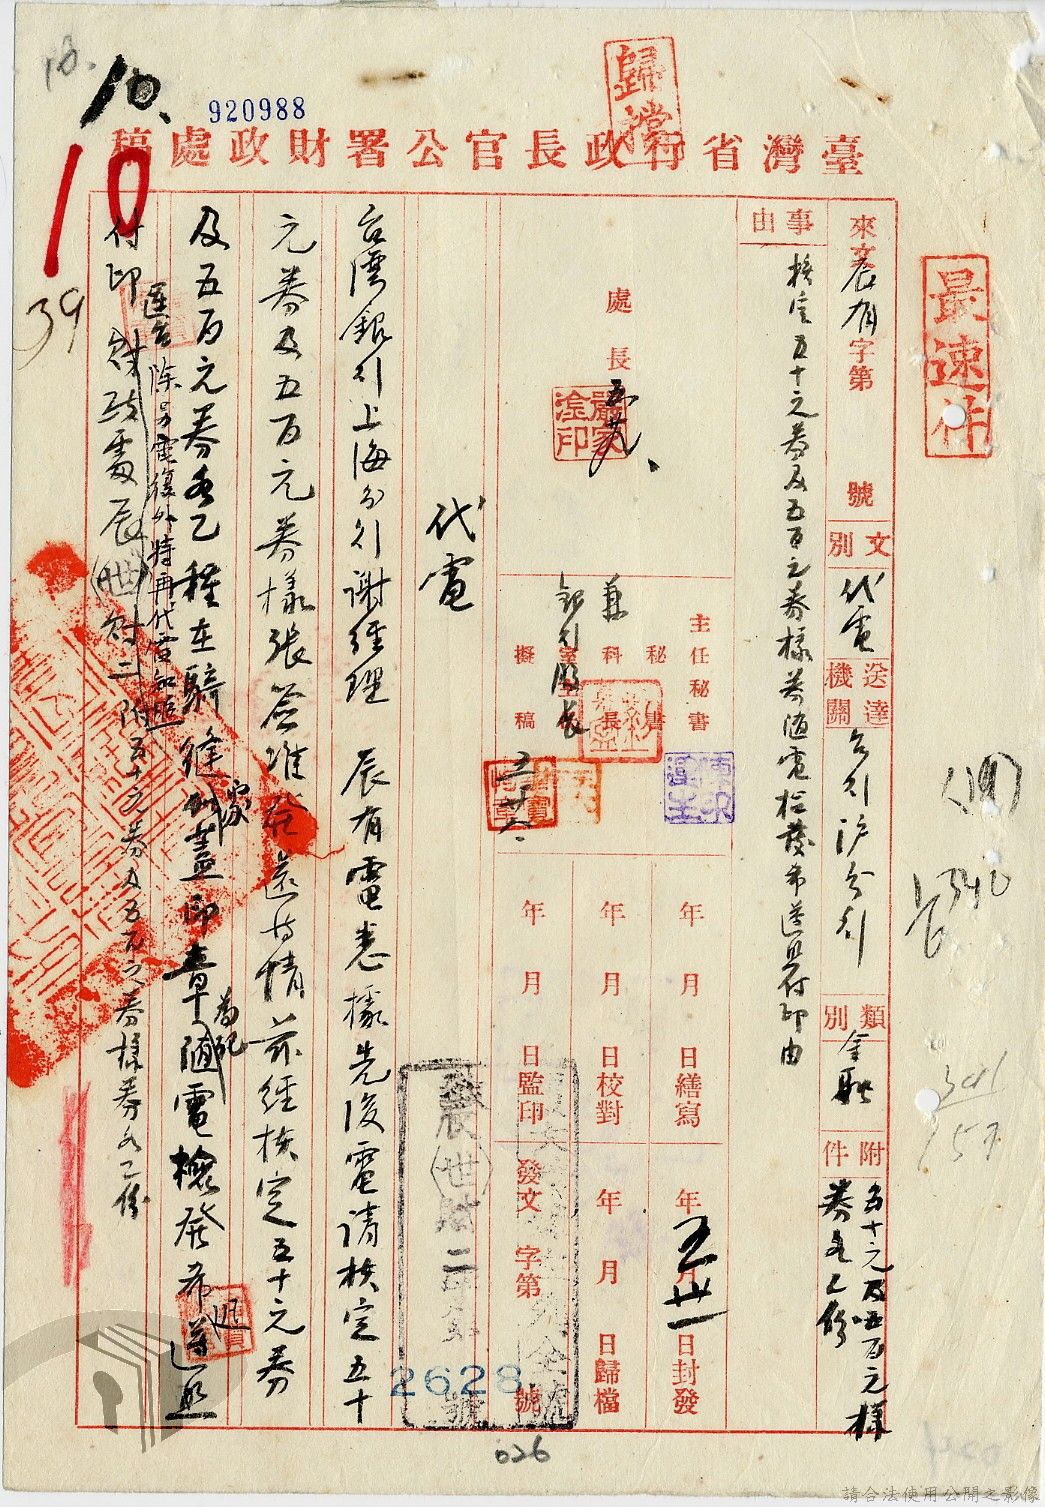 10.
920988
歸檔
臺灣省行政長官公署財政處稿
10
39
最速件
來文辰有字第 號
文別 代電
送達機關 台行沪分行
類別 金融
附件 五十元及五百元樣券各乙份
事由
核定五十元券及五百元券樣券隨電檢發希遵照付印由
處長
嚴家淦印
主任秘書
秘書
兼
科長
擬稿
五廿八
年 月 日繕寫
年 月 日校對
年 月 日監印
年 月 日封發
五卅一
年 月 日歸檔
發文 字第 號
辰(世)財二
2628
代電
台灣銀行上海分行謝經理 辰有電悉據先後電請核定五十
元券及五百元券樣張簽准發還等情茲經核定五十元券
及五百元券各乙種在騎縫加蓋印章隨電檢發希遵照
家
為記
逕台除另電復外特再代電知照
付印 財政處辰(世)財二 附五十元券及五百元券樣券各乙份
340
341
157
026
請合法使用公開之影像